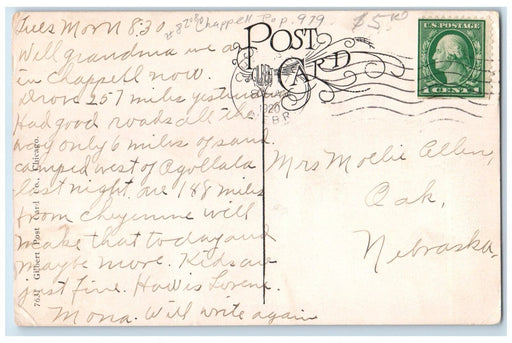 Tues Morn 8:30
#8780 Chappell Pop. 979.
$5
Well grandma we a
in Chappell now.
Drove 257 miles yesterday
Had good roads all the
way only 6 miles of sand
camped west of Ogollala
last night. are 188 miles
from Cheyenne will
make that today and
maybe more. Kids are
just fine. How is Lorene
Mona. Will write again
7631 Gilbert Post Card Co., Chicago.
POST
CARD
1920
NEBR
U.S. POSTAGE
1 CENT 1
Mrs Mollie Allen,
Oak,
Nebraska,